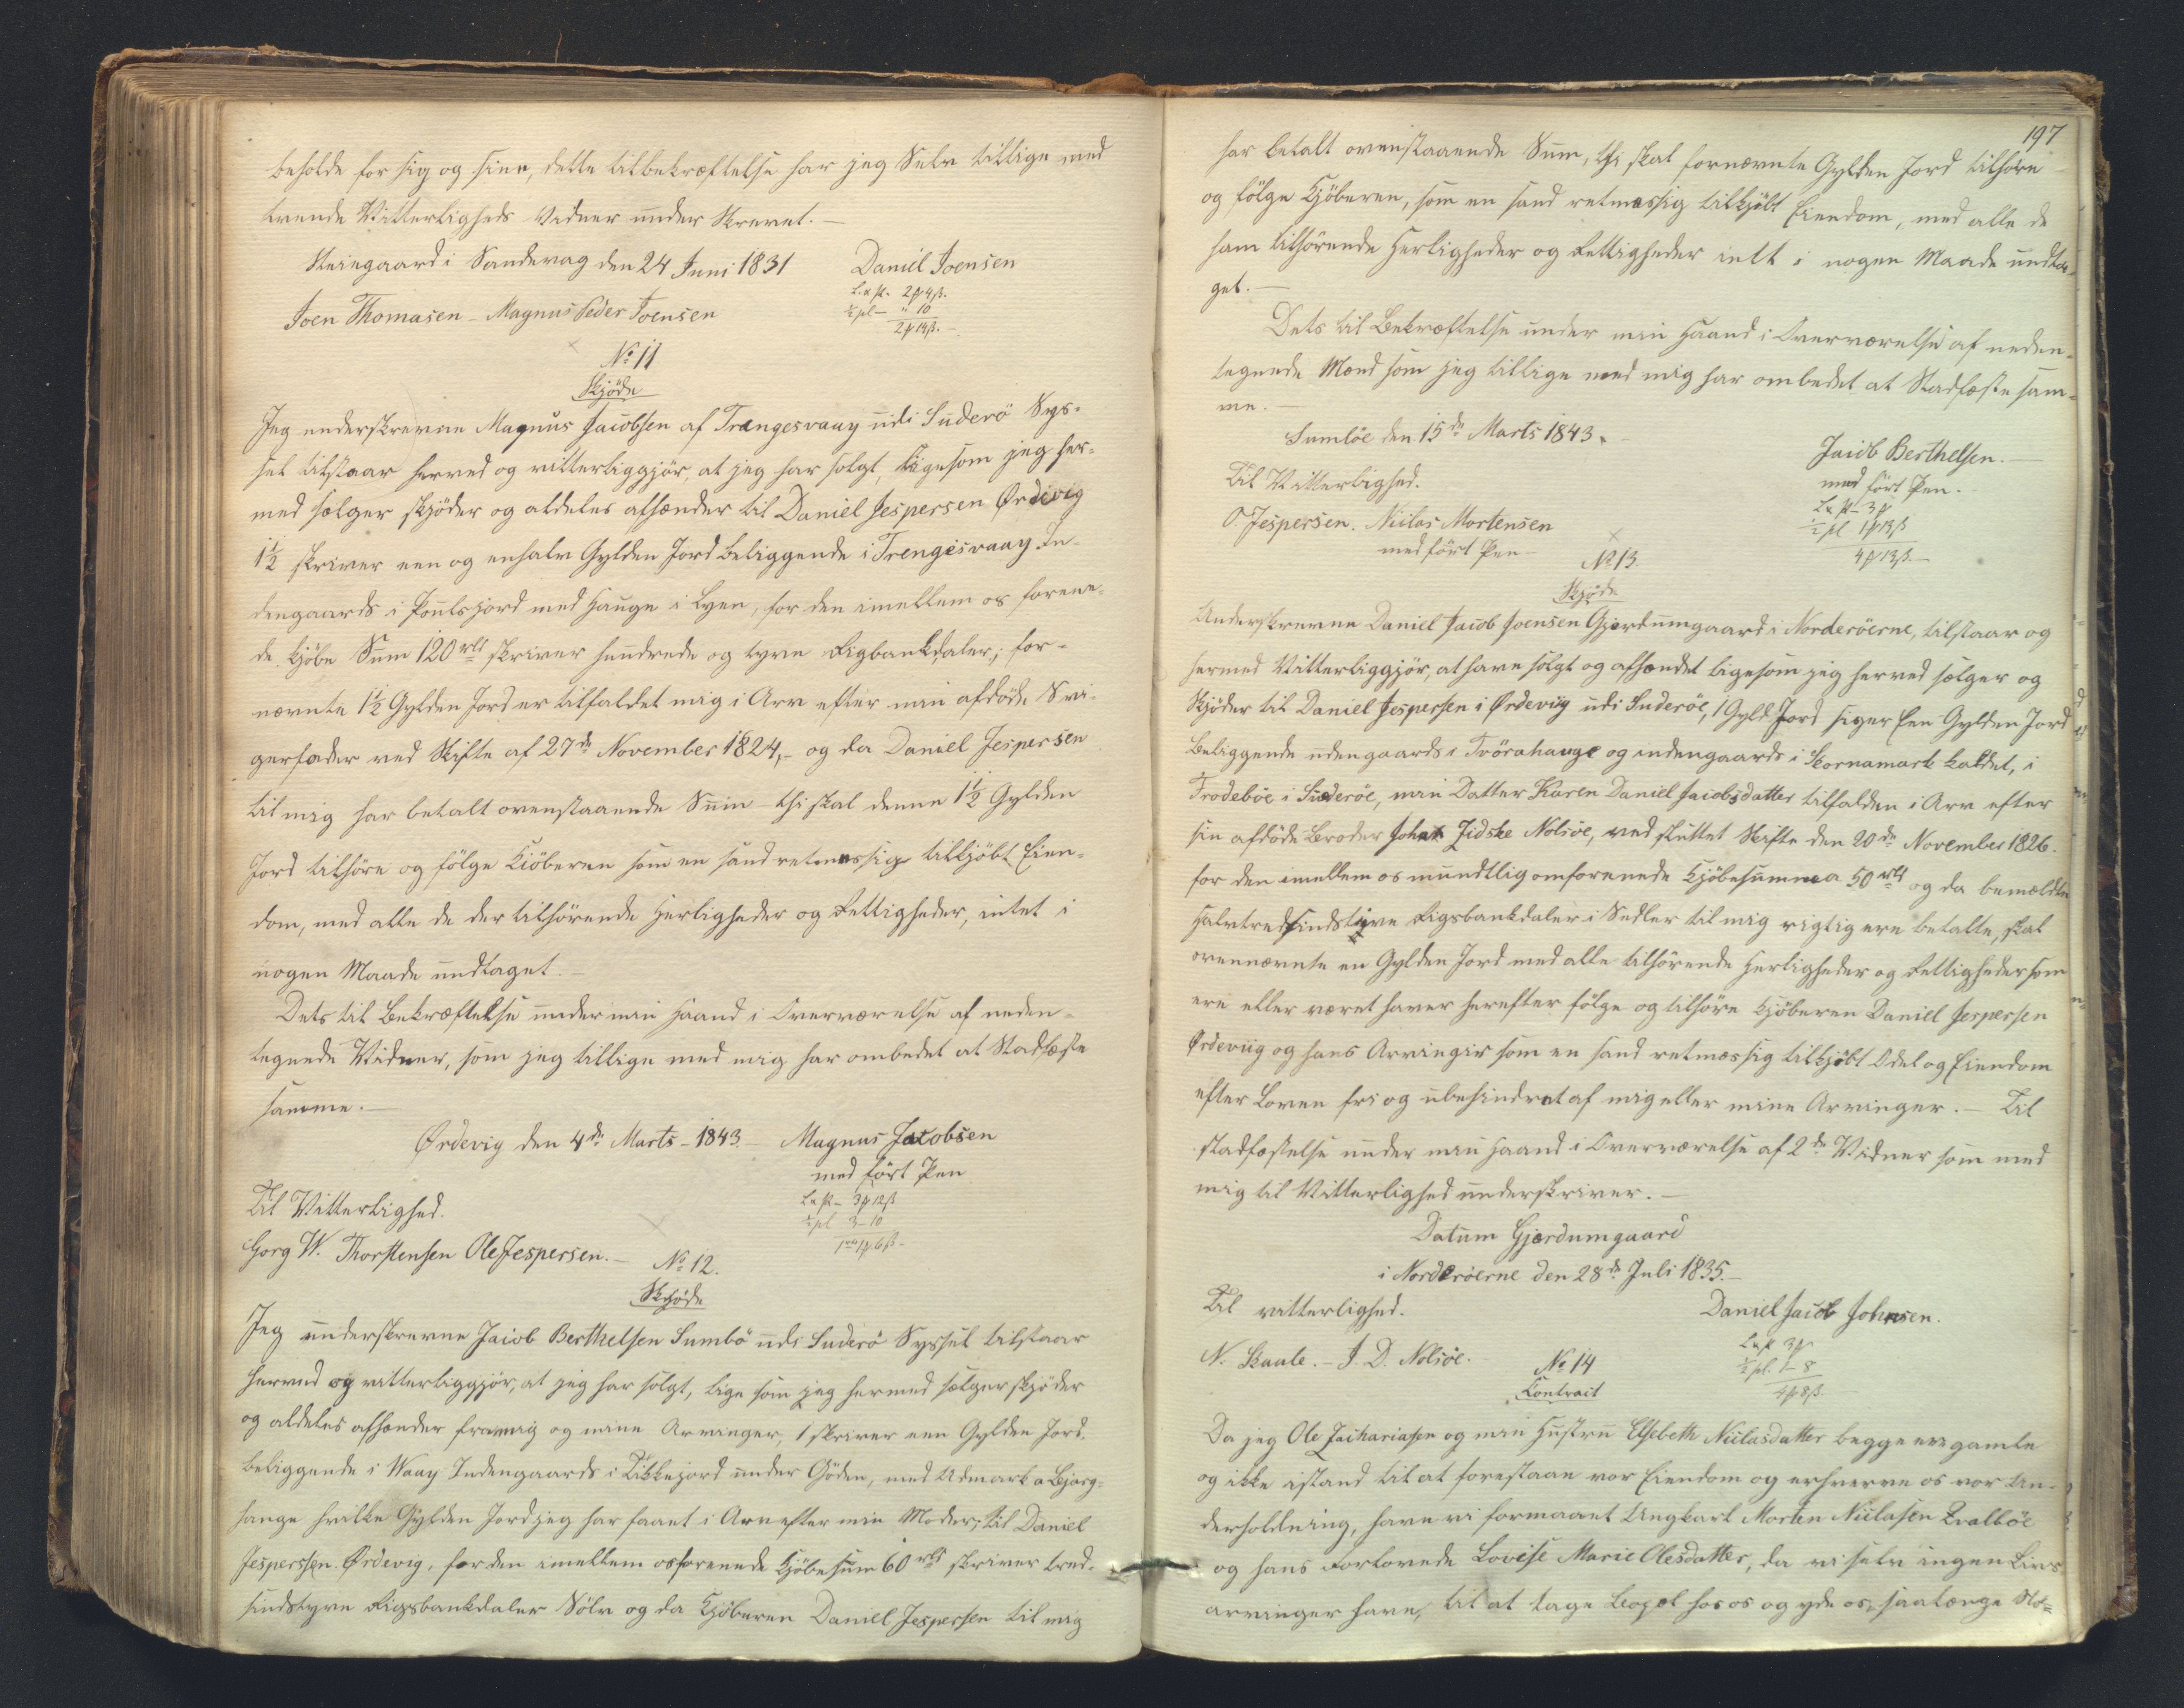 beholde for sig og sine, dette til bekræftelse har jeg Selv tillige med
tvende Vitterligheds Vidner under Skrevet.
Steingaard i Sandevag den 24 Juni 1831 Daniel Joensen
Joen Thomasen - Magnus Peder Joensen
L. a sk. 2 sk 4 ß.
½ pl - " 10
2 sk 14 ß.
No 11
Skjöde
Jeg underskrevne Magnus Jacobsen af Trangesvaag udi Suderö Sys-
sel tilstaar herved og vitterliggjör, at jeg har solgt, ligesom jeg her-
med sælger skjöder og aldeles afhænder til Daniel Jespersen Ørdevig
1½ skriver een og enhalv Gylden Jord beliggende i Trengisvaag In-
dengaards i Poulsjord med Hauge i Lyen, for den imellem os forene-
de Kjöbe Sum 120 rbd skriver hundrede og tyve Rigbankdaler; for-
nævnte 1½ Gylden Jord er tilfaldet mig i Arv efter min afdöde Svi-
gerfader ved Skifte af 27de November 1824,- og da Daniel Jespersen
til mig har betalt ovenstaaende Sum - thi skal denne 1½ Gylden
Jord tilhöre og fölge Kiöberen som en sand retmessig tilkjöbt Eien-
dom, med alle de der tilhörende Herligheder og Rettigheder, intet i
nogen Maade undtaget.
Dets til Bekræftelse under min Haand i Overværelse af neden-
tegnede Vidner, som jeg tillige med mig har ombedet at Stadfæste
samme.
Ørdevig den 4de Marts - 1843. Magnus Jacobsen
med fört Pen
Til Vitterlighed.
L a sk - 3 sk 12 ß
½ pl 3 - 10
Gorg W. Thorstensen Ole Jespersen.
No 12.
Skjöde
Jeg underskrevne Jacob Berthelsen Sumbö udi Suderö Syssel tilstaar
herved og vitterliggjör, at jeg har solgt, lige som jeg hermed sælger skjöder
og aldeles afhænder fra mig og mine Arvinger, 1 skriver een Gylden Jord.
beliggende i Waag Indengaards i Likkejord under Göden, med Udmark a Bjarg-
hange hvilke Gylden Jord jeg har faaet i Arv efter min Moder; til Daniel
Jesperssen Ørdevig, for den imellem os forenede Kjöbesum 60 rbd skriver tred-
sindstyve Rigsbankdaler Sölv og da Kjöberen Daniel Jespersen til mig
197
har betalt ovenstaaende Sum, thi skal fornævnte Gylden Jord tilhöre
og fölge Kjöberen, som en sand retmæssig tilkjöbt Eiendom, med alle de
ham tilhörende Herligheder og Rettigheder intet i nogen Maade undta-
get.
Dets til Bekræftelse under min Haand i Overværelse af neden-
tegnede Mænd som jeg tillige med mig har ombedet at Stadfæste sam-
me.
Sumböe den 15de Marts 1843.
Jacob Berthelsen.
med fört Pen.
Til Vitterlighed.
L a sk - 3 sk
½ pl 1 sk 13 ß
4 sk 13 ß
O. Jespersen. Niclas Mortensen
med fört Pen
No 13.
Skjöde
Underskrevne Daniel Jacob Joensen Gjerdumgaard i Norderöerne, tilstaar og
hermed Vitterliggjör, at have solgt og afhændet ligesom jeg herved sælger og
Skjöder til Daniel Jespersen i Ørdeviig udi Suderöe, 1 Gyld. Jord siger Een Gylden Jord
Beliggende udengaards i Tvörahauge og indengaards i Kornamark kaldet, i
Frodeböe i Suderöe, min Datter Karen Daniel Jacobsdatter tilfalden i Arv efter
sin afdöde Broder Johan Zidske Nolsöe, ved sluttet Skifte den 20de November 1826.
for den imellem os mundtlig omforenede Kjöbesumme a 50 rbd og da bemældte
Halvtredsindstyve Rigsbankdaler i Sedler til mig rigtig ere betalte, skal
ovennævnte en Gylden Jord med alle tilhörende Herligheder og Rettigheder som
ere eller været haver herefter fölge og tilhöre Kjöberen Daniel Jespersen
Ørdeviig og hans Arvinger som en sand retmæssig tilkjöbt Odel og Eiendom
efter Loven fri og ubehindret af mig eller mine Arvinger. - Til
stadfæstelse under min Haand i Overværelse af 2de Vidner som med
mig til Vitterlighed underskriver.
Datum Gjærdumgaard
i Norderöerne den 28de Juli 1835.
Til vitterlighed. Daniel Jacob Johnsen.
N. Skaale. - J. D. Nolsöe.
L a sk 3 sk
½ pl. 1 - 8
4 sk 8 ß.
No 14
Contract
Da jeg Ole Zachariasen og min Hustru Elsebeth Niclasdatter begge ere gamle
og ikke istand til at forestaae vor Eiendom og erhverve os vor Un-
derholdning, have vi formaaet Ungkarl Morten Niclasen Qvalböe
og hans Forlovede Lovise Marie Olesdatter, da vi selv ingen Livs
arvinger have, til at tage Bopæl hos os og yde os, saalænge